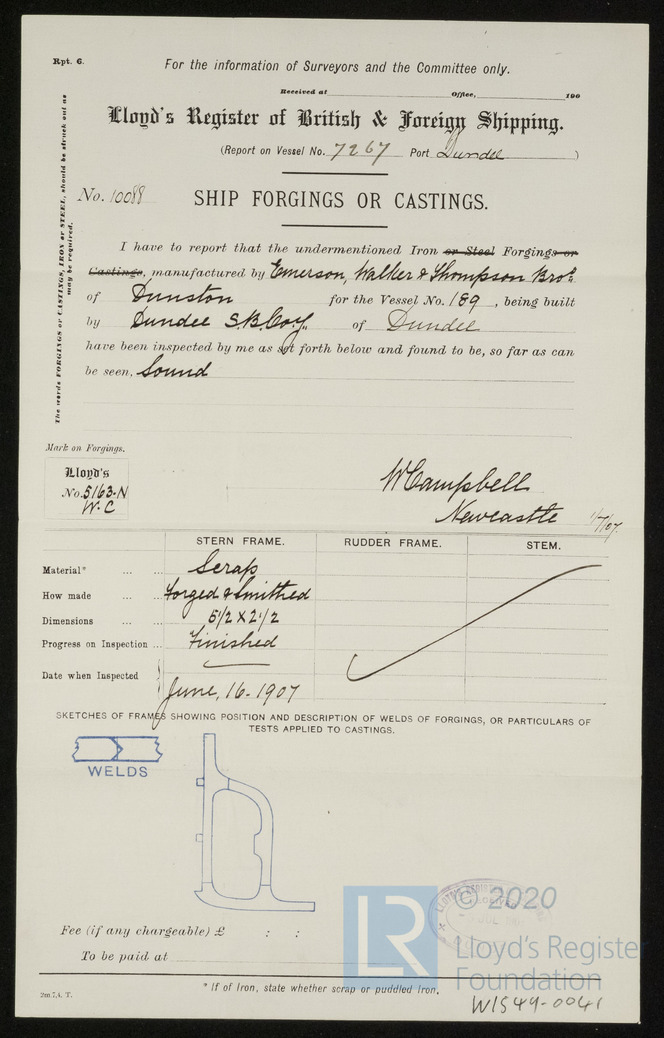 Rpt. 6.
For the information of Surveyors and the Committee only.
Received at Office, 190
Lloyd's Register of British & Foreign Shipping.
(Report on Vessel No. 7267 Port Dundee )
No. 10088
SHIP FORGINGS OR CASTINGS.
The words FORGINGS or CASTINGS, IRON or STEEL, should be struck out as may be required.
I have to report that the undermentioned Iron or Steel Forgings or
Castings, manufactured by Emerson, Walker & Thompson Bros.
of Dunston for the Vessel No. 189, being built
by Dundee S.B. Coy. of Dundee
have been inspected by me as set forth below and found to be, so far as can
be seen, Sound
Mark on Forgings.
Lloyd's
No. 5163-N
W.C
W Campbell
Newcastle 1/7/07.
STERN FRAME. RUDDER FRAME. STEM.
Material* ... ... Scrap
How made ... ... Forged & Smithed
Dimensions ... ... 5 1/2 x 2 1/2
Progress on Inspection ... Finished
Date when Inspected June, 16-1907
SKETCHES OF FRAMES SHOWING POSITION AND DESCRIPTION OF WELDS OF FORGINGS, OR PARTICULARS OF
TESTS APPLIED TO CASTINGS.
WELDS
Fee (if any chargeable) £ : :
To be paid at
* If of Iron, state whether scrap or puddled Iron.
LR
© 2020
Lloyd's Registe
Foundation
W1549-0041